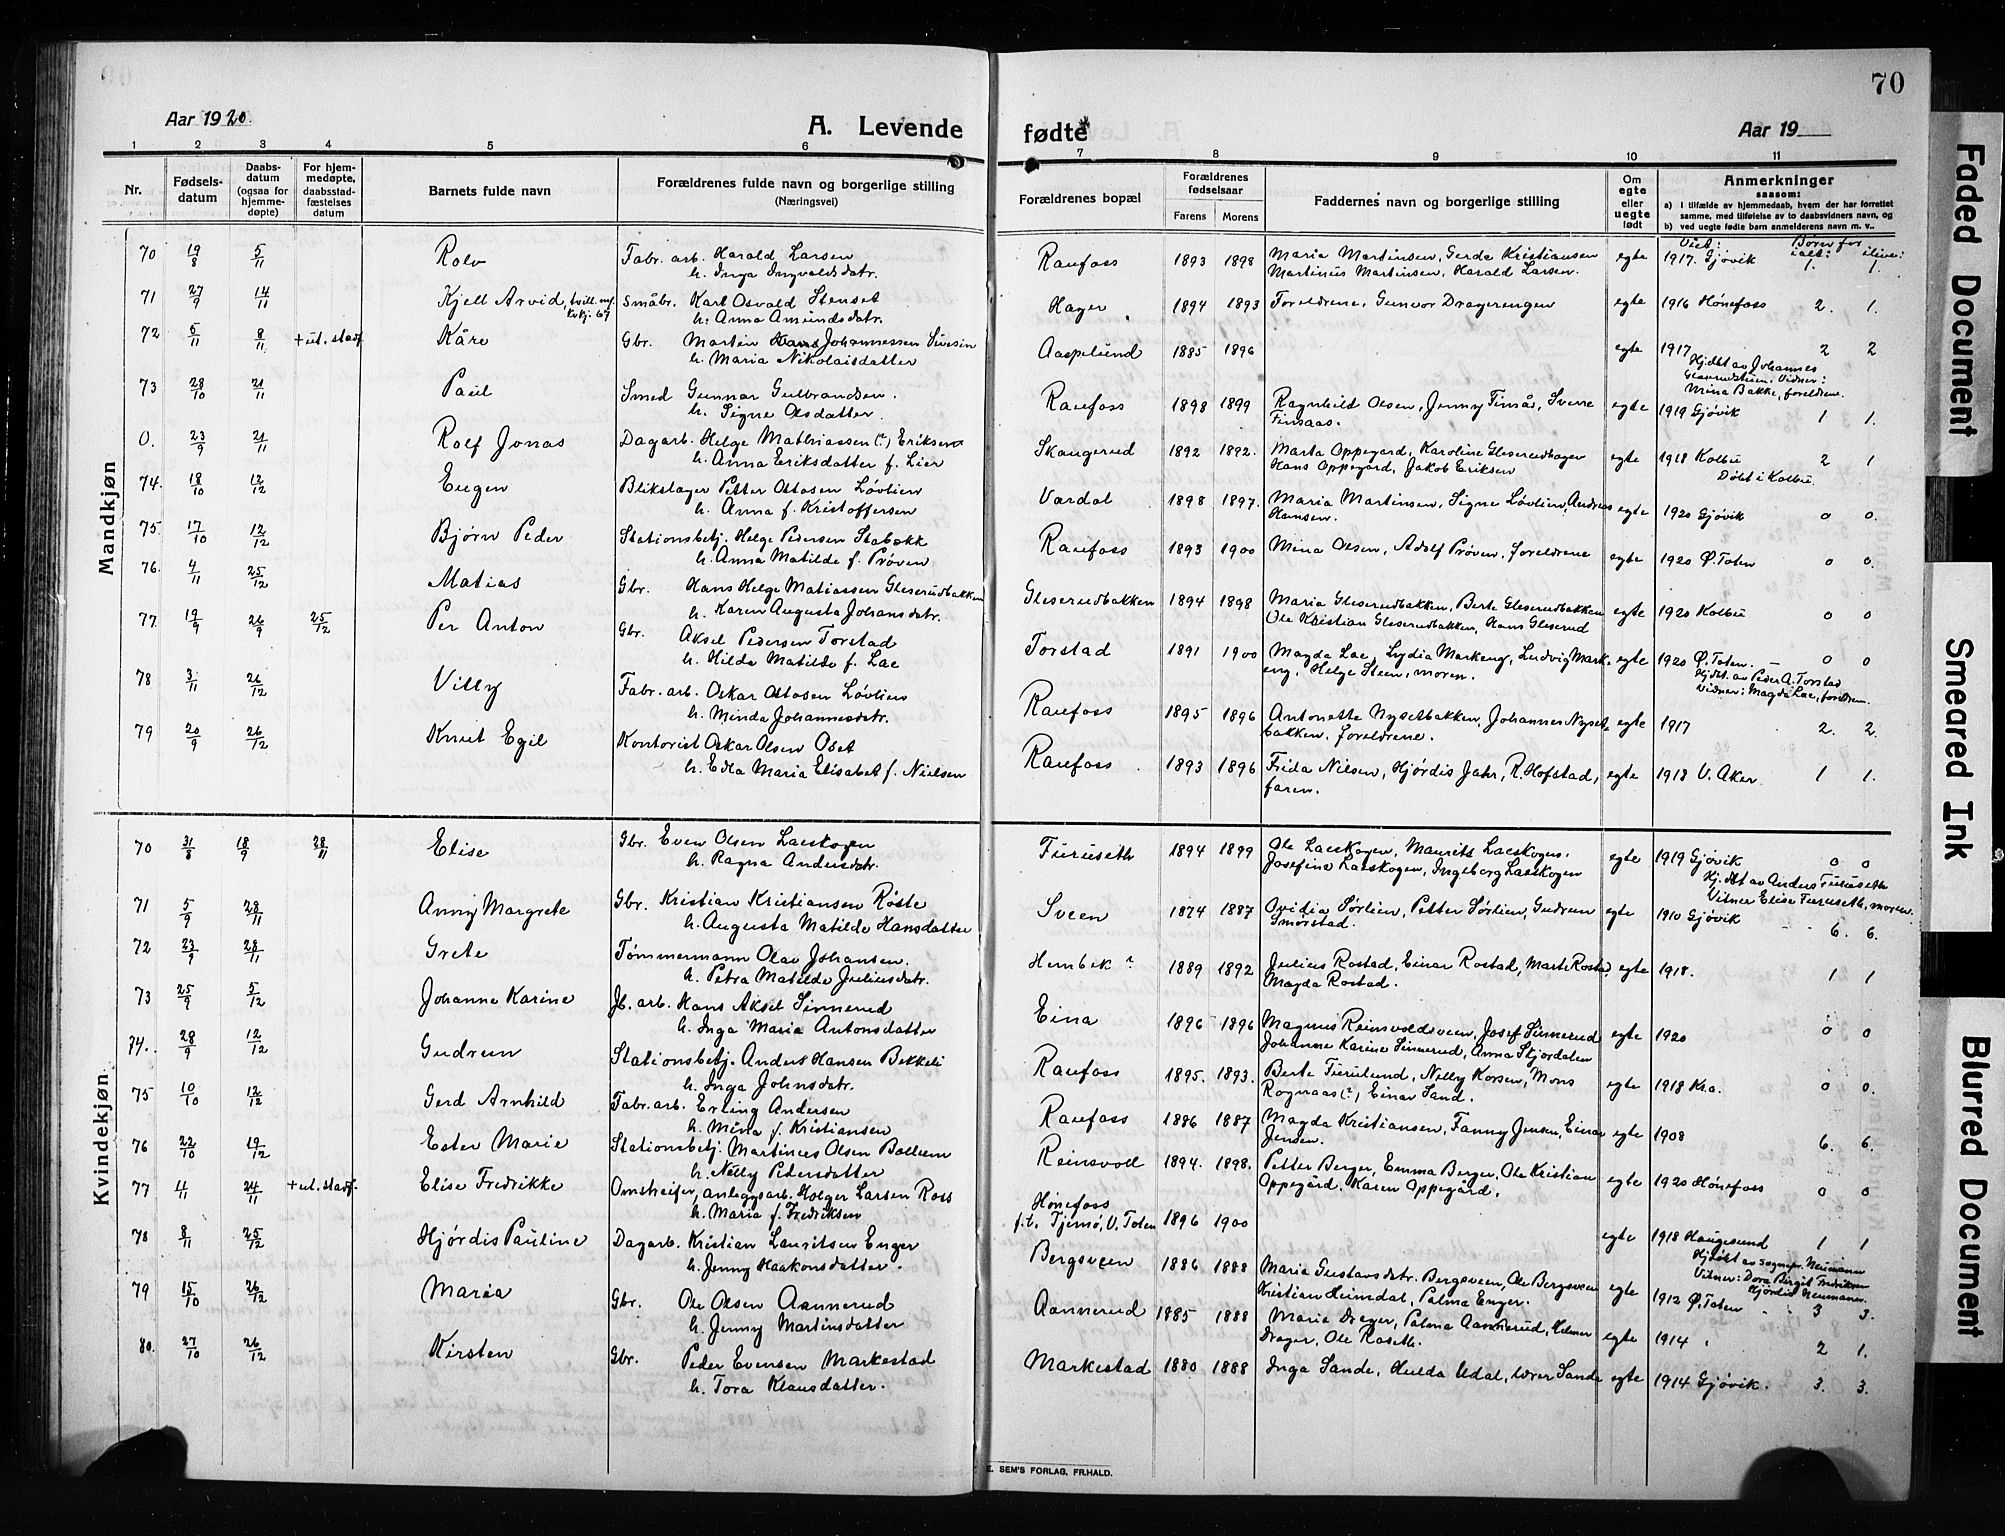 Aar 1920.
A. Levende
1 2 3 4 5 6
Nr. Fødsels-datum Daabs-datum (ogsaa for hjemme-døpte) For hjem-medøpte, daabsstad-fæstelses datum Barnets fulde navn Forældrenes fulde navn og borgerlige stilling (Næringsvei)
Mandkjøn
70 19/8 5/11 Rolv Fabr. arb. Harald Larsen
h. Inga Ingvaldsdatr.
71 27/9 14/11 Kjell Arvid, tvill. m/ Kvkj. 67 Småbr. Karl Osvald Stenset
h. Anna Amundsdatr.
72 5/11 8/11 + ut. stadf. Kåre Gbr. Martin Johannessen
h. Maria Nikolaisdatter
73 28/10 21/11 Paul Smed Gunnar Gulbrandsen.
h. Signe Olsdatter.
0. 23/9 21/11 Rolf Jonas Dagarb. Helge Mathiassen (?) Eriksen
h. Anna Eriksdatter f. Lier
74. 18/10 12/12 Eugen Blikslager Petter Ottosen Løvlien
h. Anna f. Kristoffersen
75. 17/10 12/12 Bjørn Peder Stationsbetj. Helge Pedersen Stabækk
h. Anna Matilde f. Prøven
76. 4/11 25/12 Matias Gbr. Hans Helge Matiassen Gleserudbakken
h. Karen Augusta Johansdatr.
77. 19/9 26/9 25/12 Per Anton Gbr. Aksel Pedersen Torstad
h. Hilda Matilde f. Lae
78 3/11 26/12 Villy Fabr. arb. Oskar Ottosen Løvlien
h. Minda Johannesdatr.
79 20/9 26/12 Knut Egil Kontorist Oskar Olsen Oset
h. Edla Maria Elisabet f. Nielsen
Kvindekjøn
70 31/8 18/9 28/11 Elise Gbr. Even Olsen Laeskogen
h. Ragna Andersdatr.
71 5/9 28/11 Anny Margrete Gbr. Kristian Kristiansen Røste
h. Augusta Matilde Hansdatter
72 23/9 28/11 Grete Tømmermann Olav Johansen.
h. Petra Matilde Juliusdatr.
73 25/9 5/12 Johanne Karine Jb. arb. Hans Aksel Sinnerud
h. Inga Maria Antonsdatter
74. 28/9 12/12 Gudrun Stationsbetj. Anders Hansen Bekkeli
h. Inga Johnsdatr.
75 10/10 12/12 Gerd Arnhild Fabr. arb. Erling Andersen
h. Mina f. Kristiansen
76 22/10 19/12 Ester Marie Stationsbetj. Martines Olsen Bolleım
h. Nelly Pedersdatter
77 4/11 24/11 + ut. stadf. Elise Fredrikke Omstreifer, anleggsarb. Holger Larsen Ross
h. Maria f. Fredriksen
78 8/11 25/12 Hjørdis Pauline Dagarb. Kristian Lauritsen Enger
h. Jenny Haakonsdatter.
79 15/10 26/12 Maria Gbr. Ole Olsen Aannerud
h. Jenny Martinsdatter
80. 27/10 26/12 Kirsten Gbr. Peder Evensen Markestad
h. Tora Klausdatter.
70
fødte
Aar 19
7 8 9 10 11
Forældrenes bopæl Forældrenes fødselsaar Farens Morens Faddernes navn og borgerlige stilling Om egte eller uegte født Anmerkninger
saasom:
a) I tilfælde av hjemmedaab, hvem der har forrettet samme, med tilføielse av to daabsvidners navn, og
b) ved uegte fødte barn anmelderens navn m. v..
Viet: Børn før ialt: ilive:
Raufoss 1893 1898 Maria Martinsen, Gerda Kristiansen
Martinus Martinsen, Harald Larsen. egte 1917. Gjøvik 1. 1.
Hager 1894 1893 Foreldrene, Gunvor Dragerengen egte 1916 Hønefoss 2. 1.
Aaspelund 1885 1896 egte 1917 2 2
Hjdøbt av Johannes
Vidner:
Mina Bakke, foreldrene.
Raufoss 1898 1899 Ragnhild Olsen, Jenny Finsås, Sverre
Finsaas. egte 1919 Gjøvik 1 1.
Skaugerud 1892 1892. Marta Oppegard, Karoline Gleserudhagen
Hans Oppegård, Jakob Eriksen egte 1918 Kolbu 2 1
Døbt i Kolbu.
Vardal 1898 1897. Maria Martinsen, Signe Løvlien, Andreas
Hansen. egte 1920 Gjøvik 0 0.
Raufoss 1893 1900 Mina Olsen, Adolf Prøven, foreldrene egte 1920 Ø. Toten 0 0.
Gleserudbakken 1894 1898 Maria Gleserudbakken, Berte Gleserudbakken
Ole Kristian Gleserudbakken, Hans Gleserud egte 1920 Kolbu 0 0
Torstad 1891 1900 Magda Lae, Lydia Markeng, Ludvig Mark-
eng, Helge Steen, moren. egte 1920 Ø. Toten. 0 0
Hjdbt. av Peder A. Torstad
Vidner: Magda Lae, foreldren.
Raufoss 1895 1896 Antonette Nysetbakken, Johannes Nyset-
bakken. foreldrene. egte 1917 2. 2.
Raufoss 1893 1896 Frida Nilsen, Hjørdis Jahr, R. Hofstad,
faren. egte 1918 V. Aker 1 1.
Furuseth 1894 1899 Ole Laeskogen, Maurits Laeskogen.
Josefine Laeskogen, Ingeborg Laeskogen egte 1919 Gjøvik 0 0
Hj.dbt av Anders Furuseth
Vitner Elise Furuseth, moren.
Sveen 1874 1887 Ovidia Sørlien, Petter Sørlien, Gudrun
Smørstad. egte 1910 Gjøvik 6. 6.
Hembek ? 1889 1892 Julius Rostad, Einar Rostad, Marte Rostad
Magda Rostad. egte 1918. 1 1
Eina 1896 1896 Magnus Reinsvoldsveen, Josef Sinnerud
Johanne Karine Sinnerud, Anna Stjordalen egte 1920 0 0
Raufoss 1895. 1893. Berte Furulund, Nelly Korsen, Mons
Rognaas (?), Einar Sand. egte 1918 Kra. 0 0.
Raufoss 1886 1887 Magda Kristiansen, Fanny Jensen, Einar
Jensen. egte 1908 6. 6.
Reinsvoll 1894. 1898. Petter Berger, Emma Berger, Ole Kristian
Oppegård. Karen Oppegård. egte 1920 Hønefoss 0 0
Hønefoss
f.t. Tjernø, V. Toten 1896 1900 egte 1918 Haugesund 1 1
Hjdøbt av sognepr. Neumann
Vitner: Dora Birgit Fredriksen
Hjørdis Neumann.
Bergsveen 1886 1888 Maria Gustavsdatr. Bergsveen, Ole Bergsveen
Kristian Heimdal, Palma Enger. egte 1912 Ø. Toten 3 3.
Aannerud 1885 1888 Marie Drager, Palma Aannerud, Hilmar
Drager, Ole Roseth. egte 1914 2 1.
Markestad 1880 1888 Inga Sande, Hulda Udal, lærer Sande egte 1914 Gjøvik. 3. 3.
E. SEM'S FORLAG, FR.HALD.
Faded Document
Smeared Ink
Blurred Document